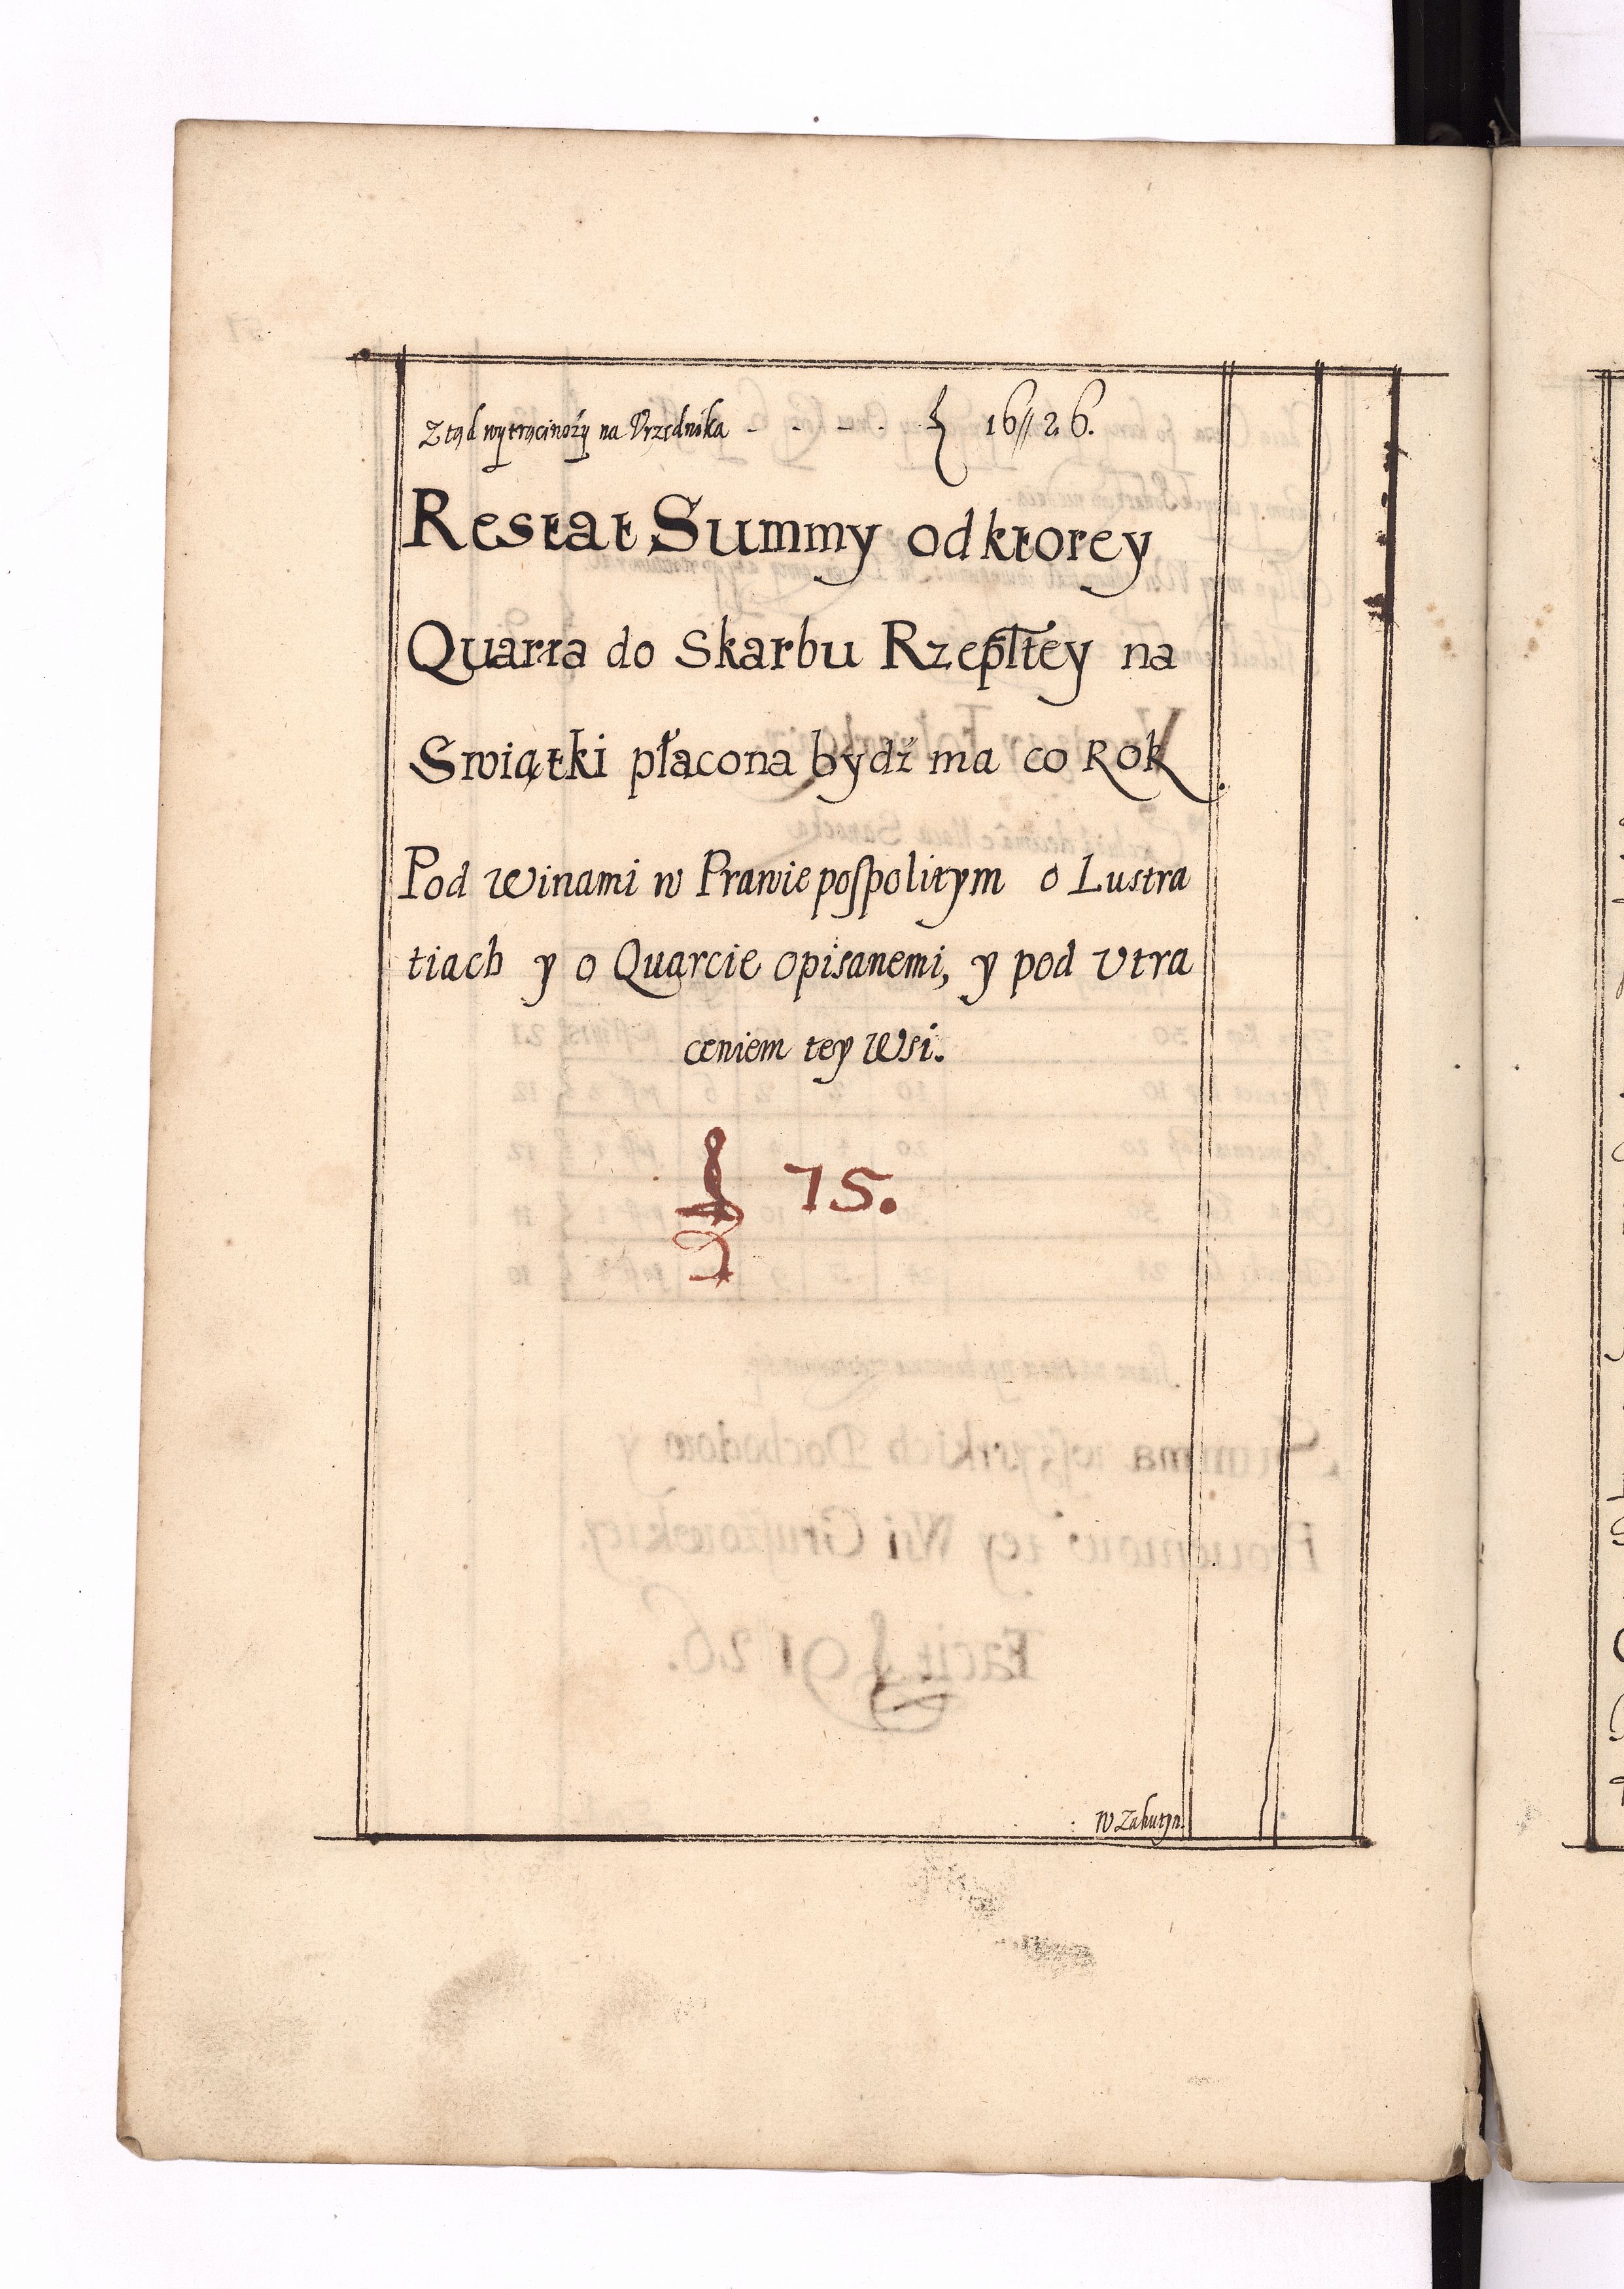 Ztąd wytrącimoży na Vrzędnika - - - - f 16//26.
Restat Summy od ktorey
Quarta do Skarbu Rzepltey na
Swiątki płacona bydź ma co Rok.
Pod winami w Prawie pospolitym o Lustra
tiach y o Quarcie opisanemi, y pod Vtra
ceniem tey Wsi.
f 75.
W Zahutyn